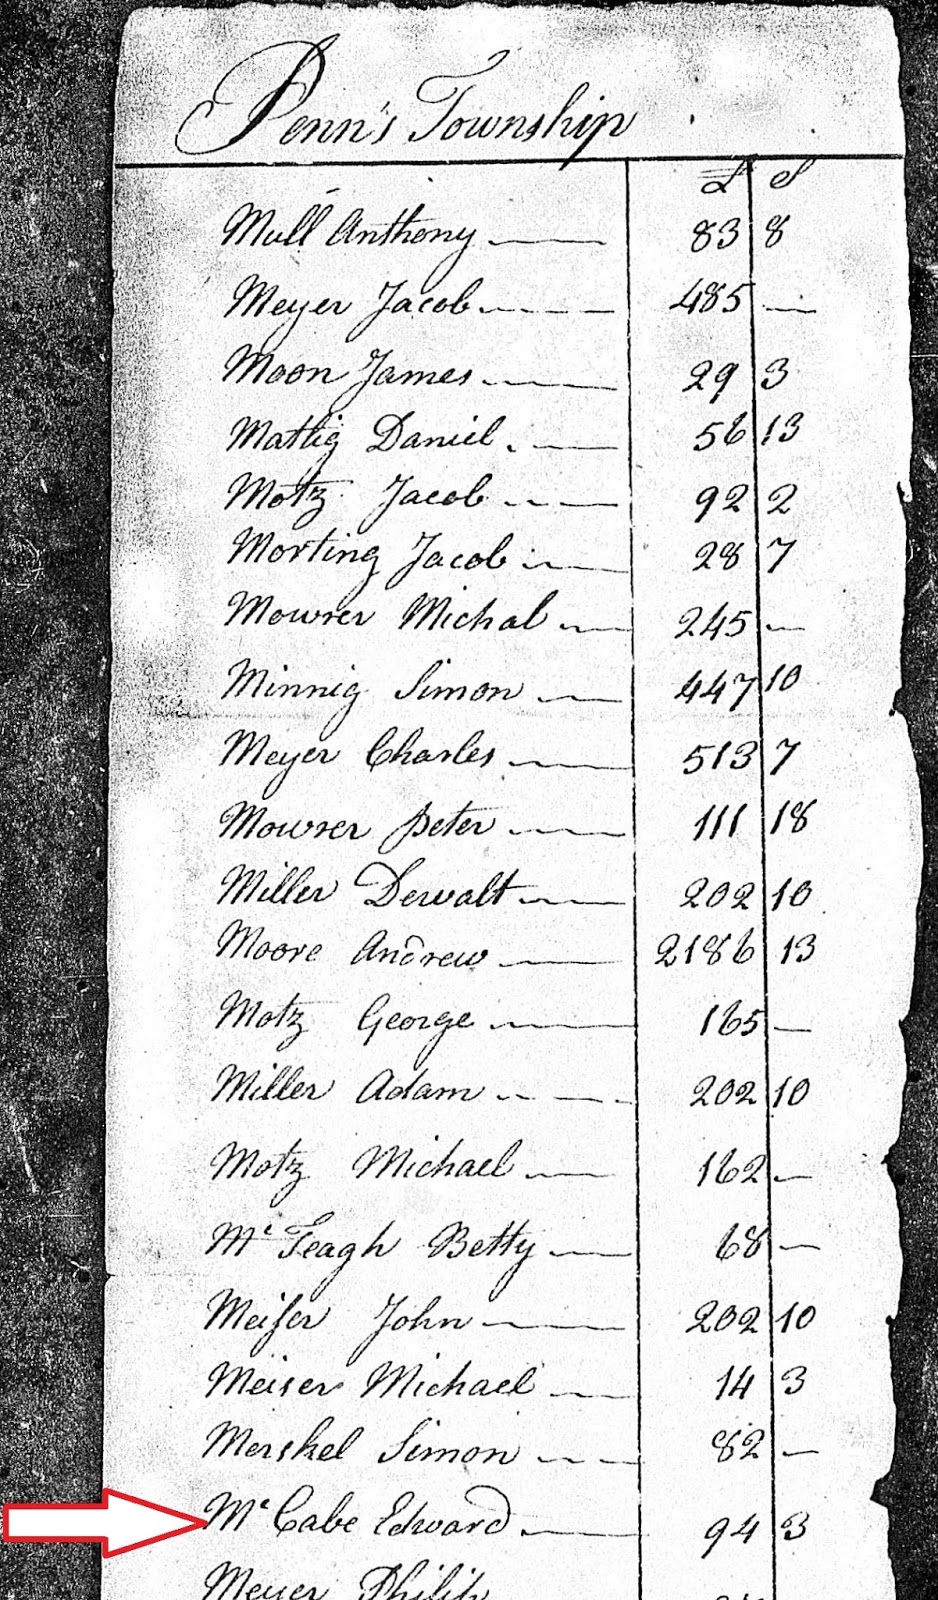 Penn's Township
£ S
Mull Anthony 83 8
Meyer Jacob 485 —
Moon James 29 3
Mattig Daniel 56 13
Motz Jacob 92 2
Morting Jacob 28 7
Mowrer Michal 245 —
Minnig Simon 447 10
Meyer Charles 513 7
Mowrer Peter 111 18
Miller Dewalt 202 10
Moore Andrew 2186 13
Motz George 165 —
Miller Adam 202 10
Motz Michael 162 —
Mc Teagh Betty 68 —
Meiser John 202 10
Meiser Michael 14 3
Mershel Simon 82 —
Mc Cabe Edward 94 3
Meyer Philip